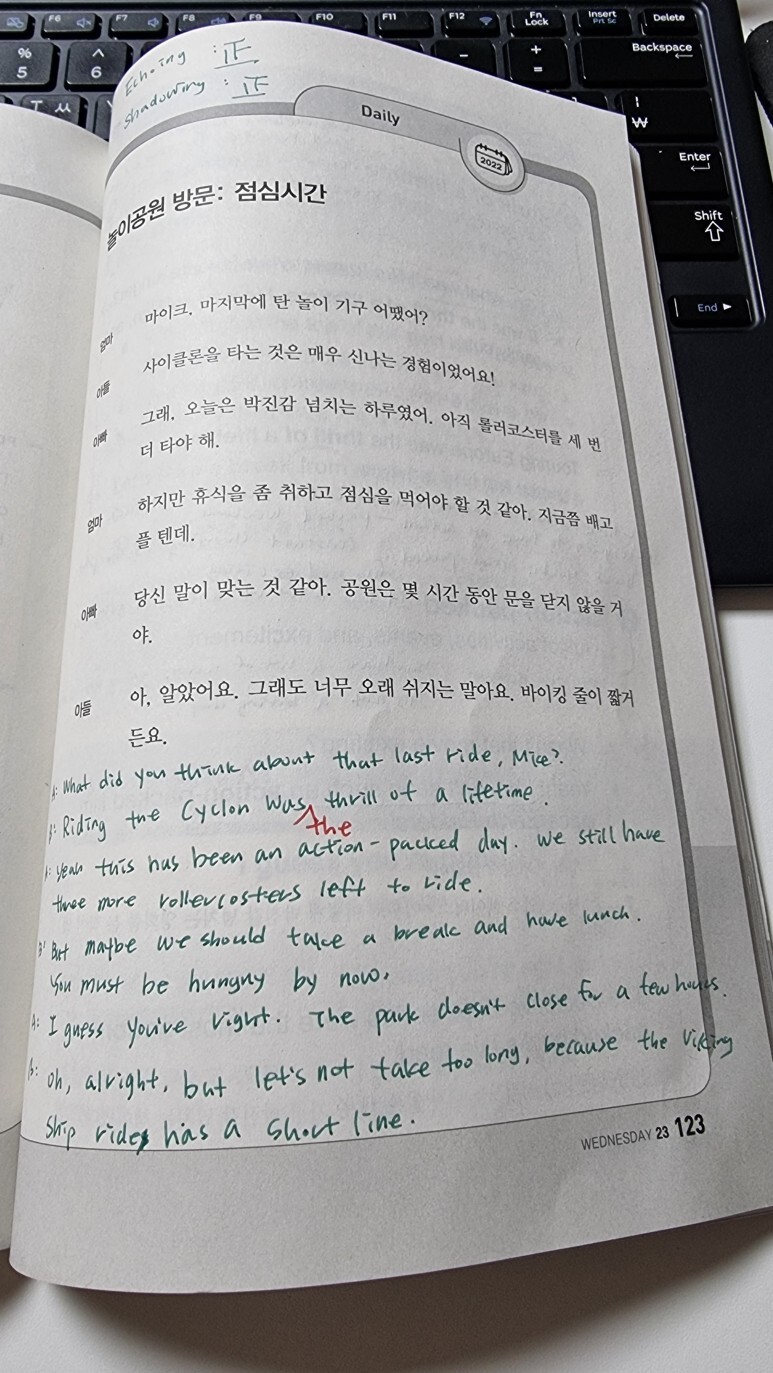 F6
F7
F8
F9
F10
F11
F12
Fn Lock
Insert
Prt Sc
Delete
%
5
^
6
+
=
Backspace
₩
Enter
Shift
End
Echoing : 正
Shadowing : 正
Daily
2022
놀이공원 방문: 점심시간
엄마 마이크, 마지막에 탄 놀이 기구 어땠어?
아들 사이클론을 타는 것은 매우 신나는 경험이었어요!
아빠 그래, 오늘은 박진감 넘치는 하루였어. 아직 롤러코스터를 세 번
더 타야 해.
엄마 하지만 휴식을 좀 취하고 점심을 먹어야 할 것 같아. 지금쯤 배고
플 텐데.
아빠 당신 말이 맞는 것 같아. 공원은 몇 시간 동안 문을 닫지 않을 거
야.
아들 아, 알았어요. 그래도 너무 오래 쉬지는 말아요. 바이킹 줄이 짧거
든요.
A: What did you think about that last ride, Mice?
B: Riding the Cyclon was thrill of a lifetime.
the
A: Yeah this has been an action-packed day. We still have
three more rollercosters left to ride.
B: But maybe we should take a break and have lunch.
You must be hungry by now.
A: I guess you're right. The park doesn't close for a few hours.
B: Oh, alright, but let's not take too long, because the viking
ship ride has a short line.
WEDNESDAY 23 123